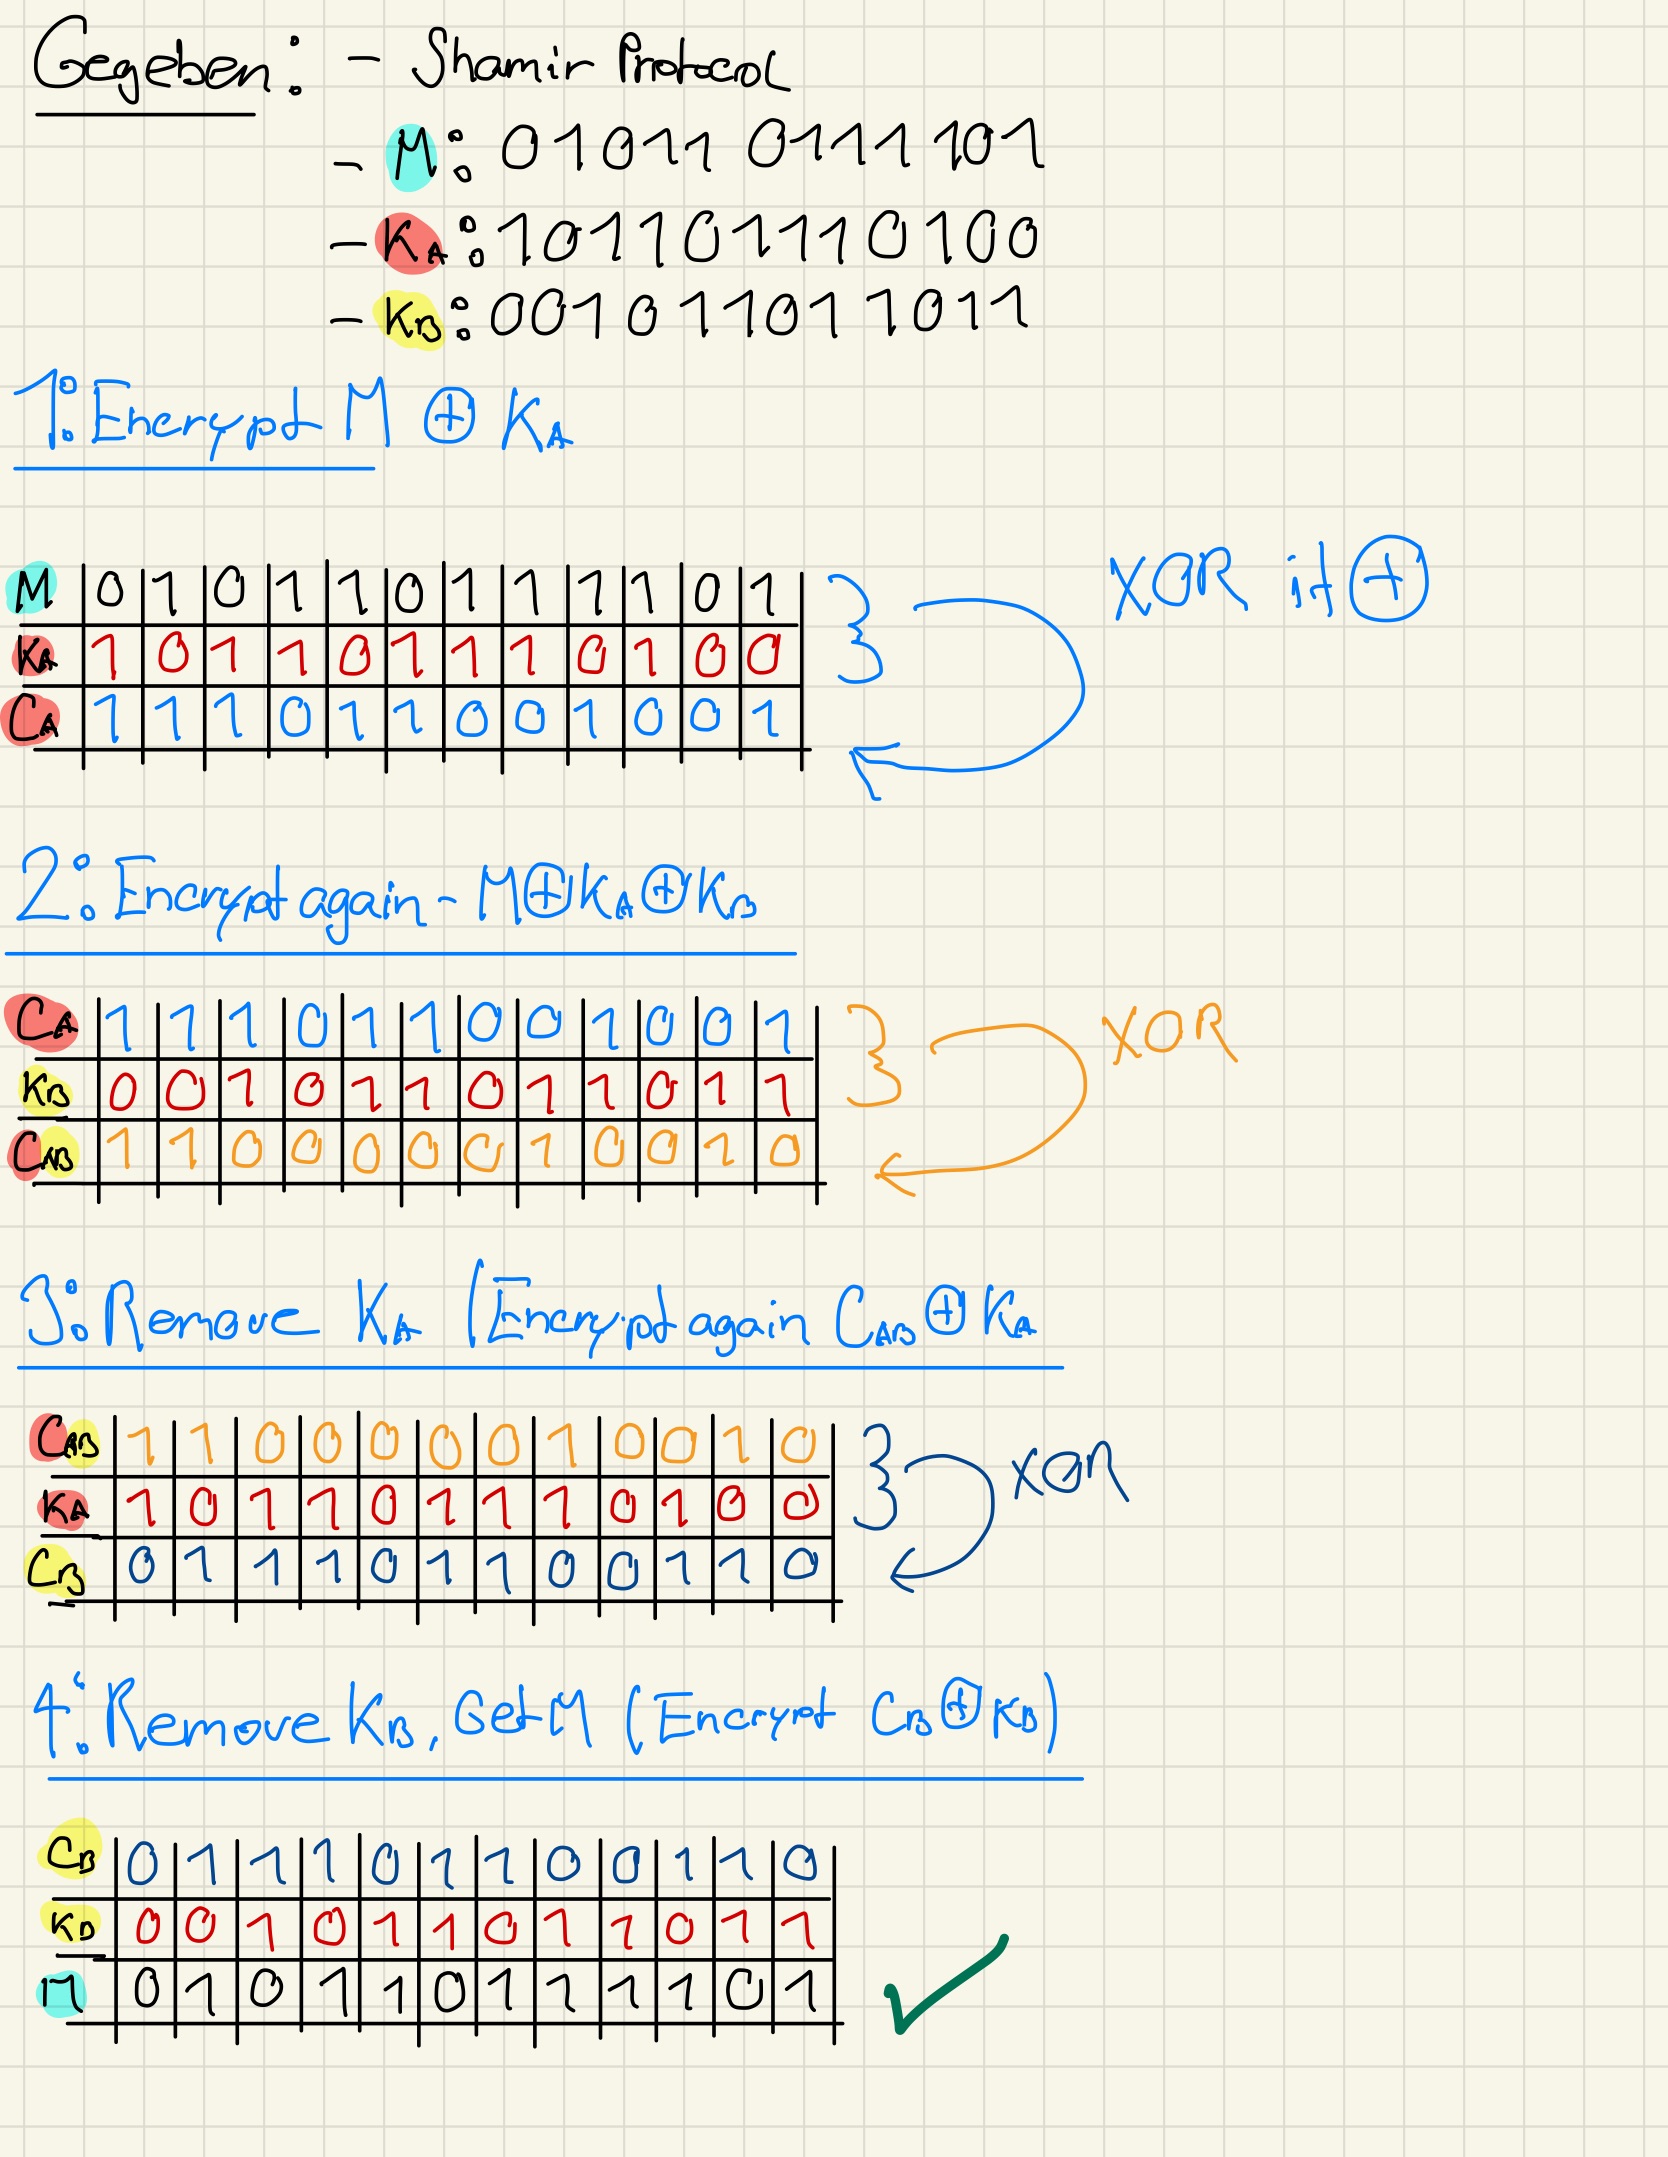 Gegeben: - Shamir Protocol
- M: 01011 0111 101
- KA: 101101110100
- KB: 001011011011
1: Encrypt M ⊕ KA
XOR if ⊕
M 0 1 0 1 1 0 1 1 1 1 0 1
KA 1 0 1 1 0 1 1 1 0 1 0 0
CA 1 1 1 0 1 1 0 0 1 0 0 1
2: Encrypt again - M⊕KA⊕KB
CA 1 1 1 0 1 1 0 0 1 0 0 1
XOR
KB 0 0 1 0 1 1 0 1 1 0 1 1
CAB 1 1 0 0 0 0 0 1 0 0 1 0
3: Remove KA (Encrypt again CAB⊕KA
CAB 1 1 0 0 0 0 0 1 0 0 1 0
XOR
KA 1 0 1 1 0 1 1 1 0 1 0 0
CB 0 1 1 1 0 1 1 0 0 1 1 0
4: Remove KB, Get M (Encrypt CB⊕KB)
CB 0 1 1 1 0 1 1 0 0 1 1 0
KB 0 0 1 0 1 1 0 1 1 0 1 1
M 0 1 0 1 1 0 1 1 1 1 0 1